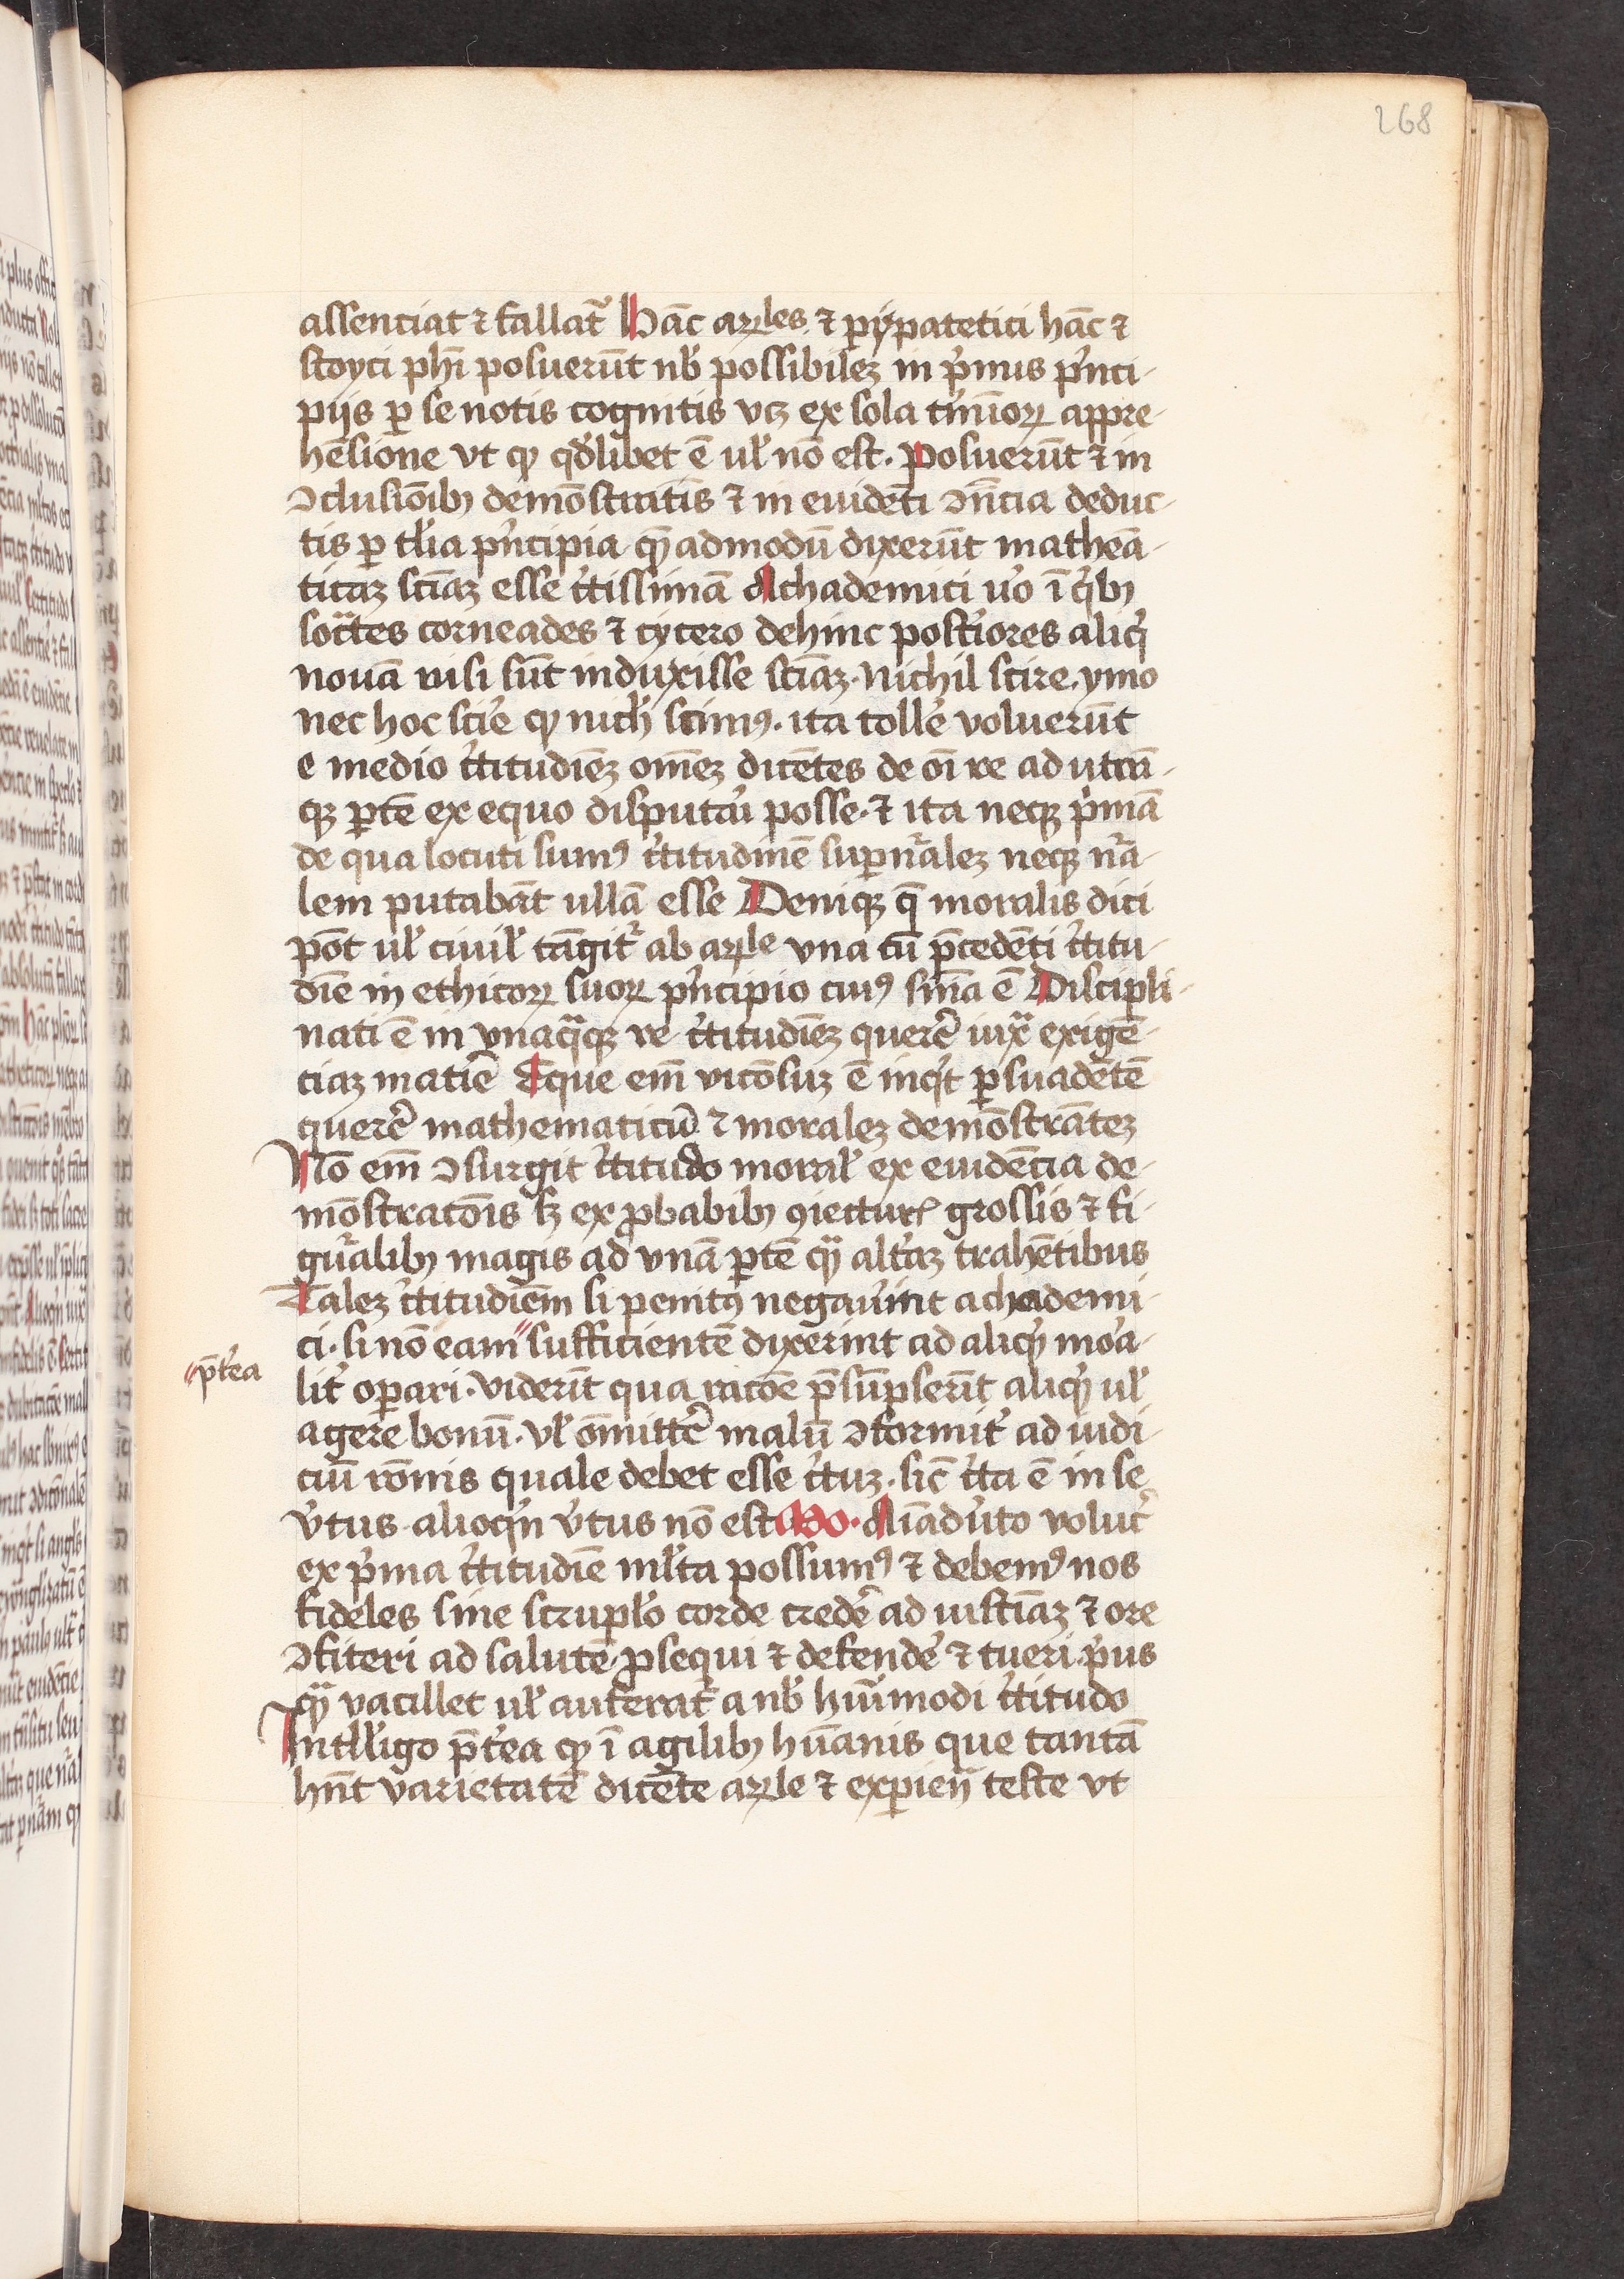 268
assenciat ⁊ fallat᷑ Hāc arꝫles ⁊ pypatetici hāc ⁊
stoyci phī posuerūt nb̓ possibileꝫ in p̓mis p̓nci-
piis ꝑ se notis cognitis vcꝫ ex sola t̓mīoꝝ appre-
hēsione vt ꝙ qd̓libet ē ul̓ nō est. Posuerūt ⁊ in
ↄclusiōibꝫ demōstratis ⁊ in euidēti ↄn̄cia deduc-
tis ꝑ tl̓ia p̓ncipia quēadmodū dixerūt matheā-
ticaꝫ sciāꝫ esse c̓tissimā Achademici u̓o ī qͥbꝫ
soct̓es corneades ⁊ cycero dehinc post̓iores aliqͣ
nouā visi sūt induxisse sciāꝫ. Nichil scire. ymo
nec hoc scir̓e ꝙ nich̓ scimꝰ. ita toller̓e voluerūt
e medio c̓titudīeꝫ om̄eꝫ dicētes de oī re ad utrā-
qꝫ ꝑtē ex equo disputari posse. ⁊ ita neqꝫ p̓mā
de qua locuti sumꝰ c̓titudinē supn̄raleꝫ neqꝫ n̄ra-
lem putabāt ullā esse Deniqꝫ q̄ moralis dici
pōt ul̓ ciuil̓ tāgit᷑ ab arꝫle vna cū p̄cedēti c̓titu-
dīe in ethicoꝝ suoꝝ p̓ncipio cuiꝰ sn̄ia ē Discipli-
nati ē in vnaqͣqꝫ re c̓titudīeꝫ querer̓e iuxͣ exigē-
ciaꝫ matīe Eque em̄ viciōsuꝫ ē inqͥt ꝑsuadētē
querer̓e mathematicū ⁊ moraleꝫ demōstrāteꝫ
Nō em̄ ↄsurgit c̓titudo moral̓ ex euidēcia de-
mōstracōis sꝫ ex ꝓbabibꝫ ꝯiecturꝭ grossis ⁊ fi-
gu̓alibꝫ magis ad vnā ꝑtē qͣꝫ alt̓aꝫ trahētibus
Taleꝫ c̓titudīem si penitꝰ negau̓int achademi-
ci. si nō eam sufficientē dixerint ad aliqͥd mora-
lit̓ oꝑari. viderīt qua racōe p̄sūpserīt aliqͥd ul̓
agere bonū. vl̓ omittēr̓e malū ↄformit̓ ad iudi-
ciū rōnis quale debet esse c̓tuꝫ. sic̄ c̓ta ē in se
v̓tus alioqͥn v̓tus nō est Mo. Aīaduer̓to voluc̓
ex p̓ma c̓titudīe ml̓ta possumꝰ ⁊ debemꝰ nos
fideles sine scrupl̓o corde creder̓e ad iusticiāꝫ ⁊ ore
ↄfiteri ad salutē ꝓsequi ⁊ defender̓e ⁊ tueri. p̓us
qͣꝫ vacillet ul̓ auferat̓ a nb̓ hui̓modi c̓titudo
Intll̓igo p̄t̓ea ꝙ ī agilibꝫ hūanis que tantā
hn̄t varietatē dicēte arꝫle ⁊ exꝑien̄ teste vt
p̄t̓ea